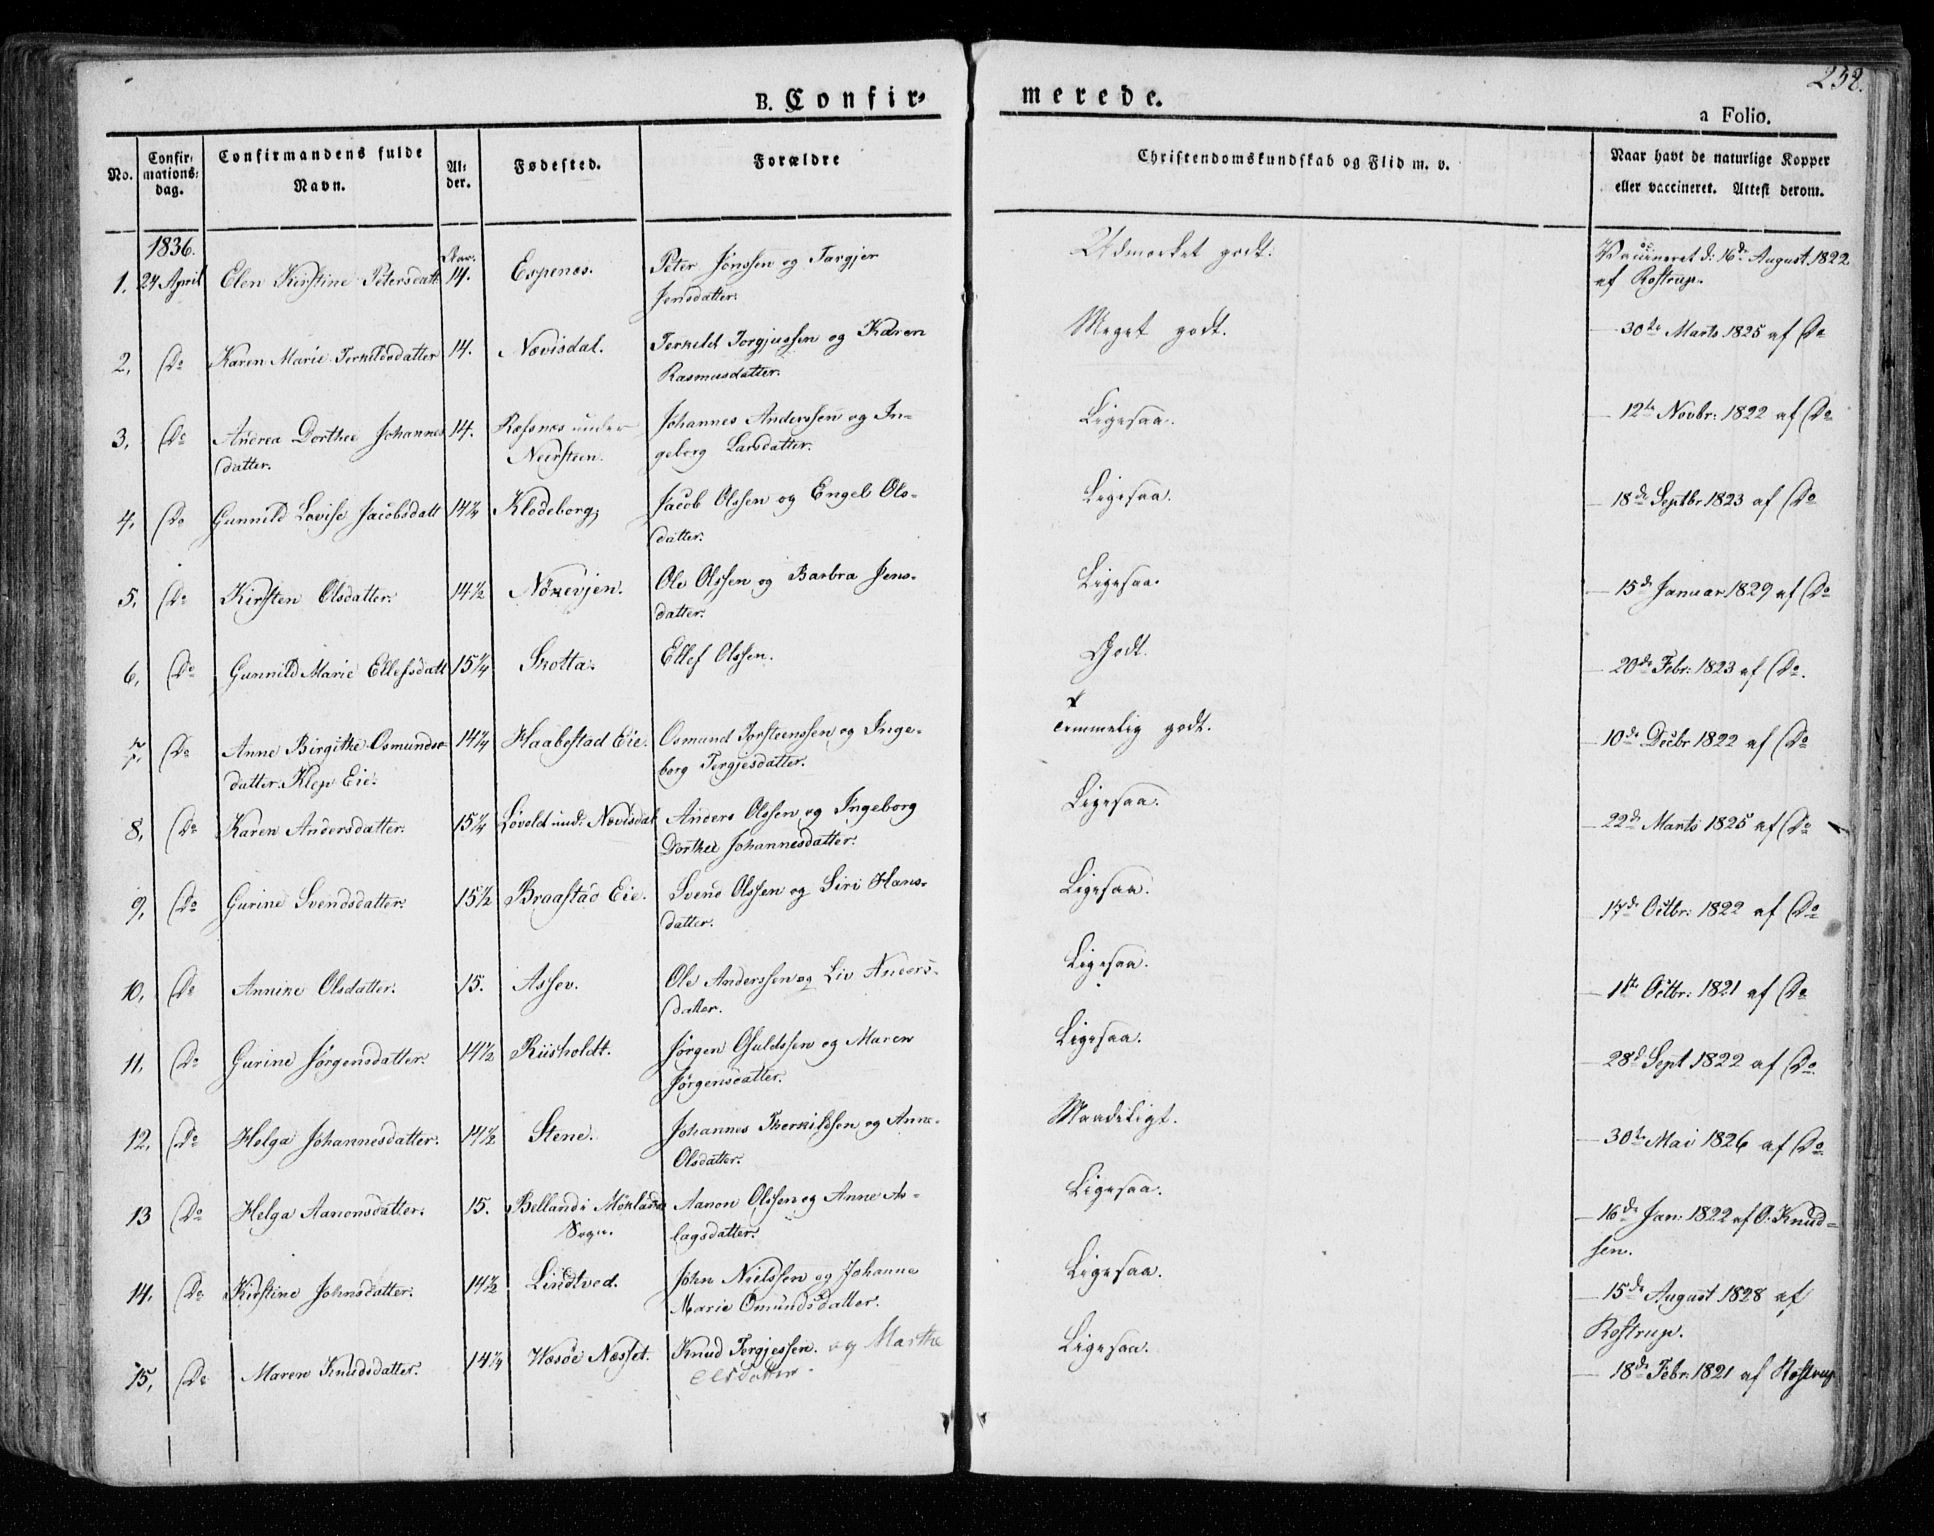 238.
B. Confirmerede.
a Folio.
No.
Confirmationsdag.
Confirmandens fulde Navn.
Alder.
Fødested.
Forældre
Christendomskundskab og Flid m. v.
Naar havt de naturlige Kopper eller vaccineret. Attest derom.
1836.
1. 24 April Elen Kirstine Petersdatt 14. Espenæs. Peter Jonssen og Torgjer Udmærket godt. Vaccineret d: 16de August 1822
Jensdatter. af Rostrup.
2, Do Karen Marie Terkildsdatter 14. Nævisdal. Terkild Torgjussen og Karen Meget godt. — 30te Marts 1825 af Do
Rasmusdatter.
3, Do Andrea Dorthee Johannes 14. Refsnæs under Johannes Anderssen og In- Ligesaa. — 12te Novbr: 1822 af Do
datter. Neersteen. geborg Larsdatter.
4, Do Gunnild Lovise Jacobsdatt 14¼ Klodeborg, Jacob Olssen og Engel Ols- Ligesaa. — 18de Septbr 1823 af Do
datter.
5, Do Kirsten Olsdatter. 14½ Nörevjen. Ole Olssen og Barbra Jens- Ligesaa. — 15de Januar 1829 af Do
datter.
6, Do Gunnild Marie Ellefsdatt 15¼ Skotta. Ellef Olssen. Godt. — 20de Febr: 1823 af Do.
7. Do Anne Birgithe Osmunds- 14¼ Haabestad Eie. Osmund Torsteenssen og Inge- Temmelig godt. — 10de Decbr 1822 af Do
datter. Klep Eie. borg Tergjesdatter.
8, Do Karen Andersdatter. 15¼ Lövold und: Nævisdal Anders Olssen og Ingeborg Ligesaa. — 22de Marts 1825 af Do
Dorthee Johannesdatter.
9, Do Gurine Svendsdatter. 15½ Braastad Eie. Svend Olssen og Siri Hans- Ligesaa. — 17de Octbr: 1822 af Do
datter.
10, Do Annike Olsdatter. 15. Assev. Ole Anderssen og Liv Anders- Ligesaa. — 1ste Octbr: 1821 af Do
datter.
11, Do Gurine Jörgensdatter. 14½ Riisholdt. Jörgen Osuldssen og Maren Ligesaa. — 28de Sept 1822 af Do
Jörgensdatter.
12, Do Helga Johannesdatter. 14½ Stene. Johannes Therkildsen og Anne Maadeligt. — 30te Mai 1826 af Do
Olsdatter.
13 Do Helga Aanonsdatter. 15. Belland i Aanon Olssen og Anne As- Ligesaa. — 16de Jan: 1822 af O. Knud-
Sogn. lagsdatter. sen.
14, Do Kirstine Johnsdatter. 14½ Lindtved. John Nielssen og Johanne Ligesaa. — 15de August 1828 af
Marie Omundsdatter. Rostrup.
15, Do Maren Knudsdatter. 14¼ Hæsöe Næsset. Knud Tergjessen. og Marthe Ligesaa. — 18de Febr: 1821 af Rostrup
Olsdatter